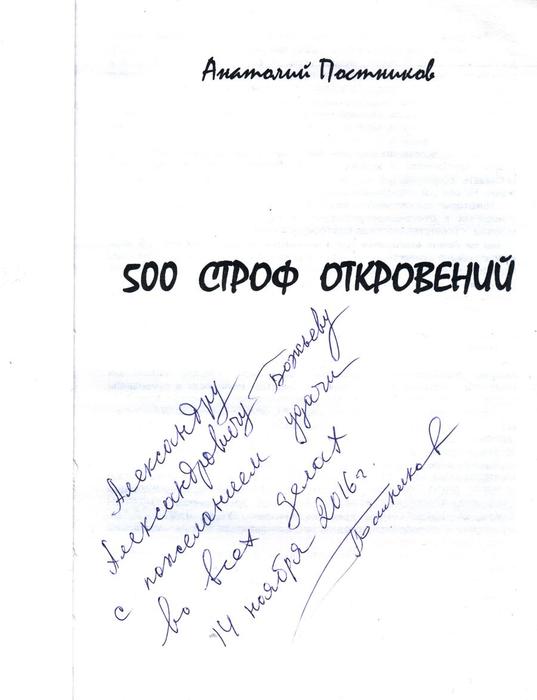 Анатолий Постников
500 СТРОФ ОТКРОВЕНИЙ
Александру
Александровичу Божьеву
с пожеланием удачи
во всех делах
14 ноября 2016г.
Постников